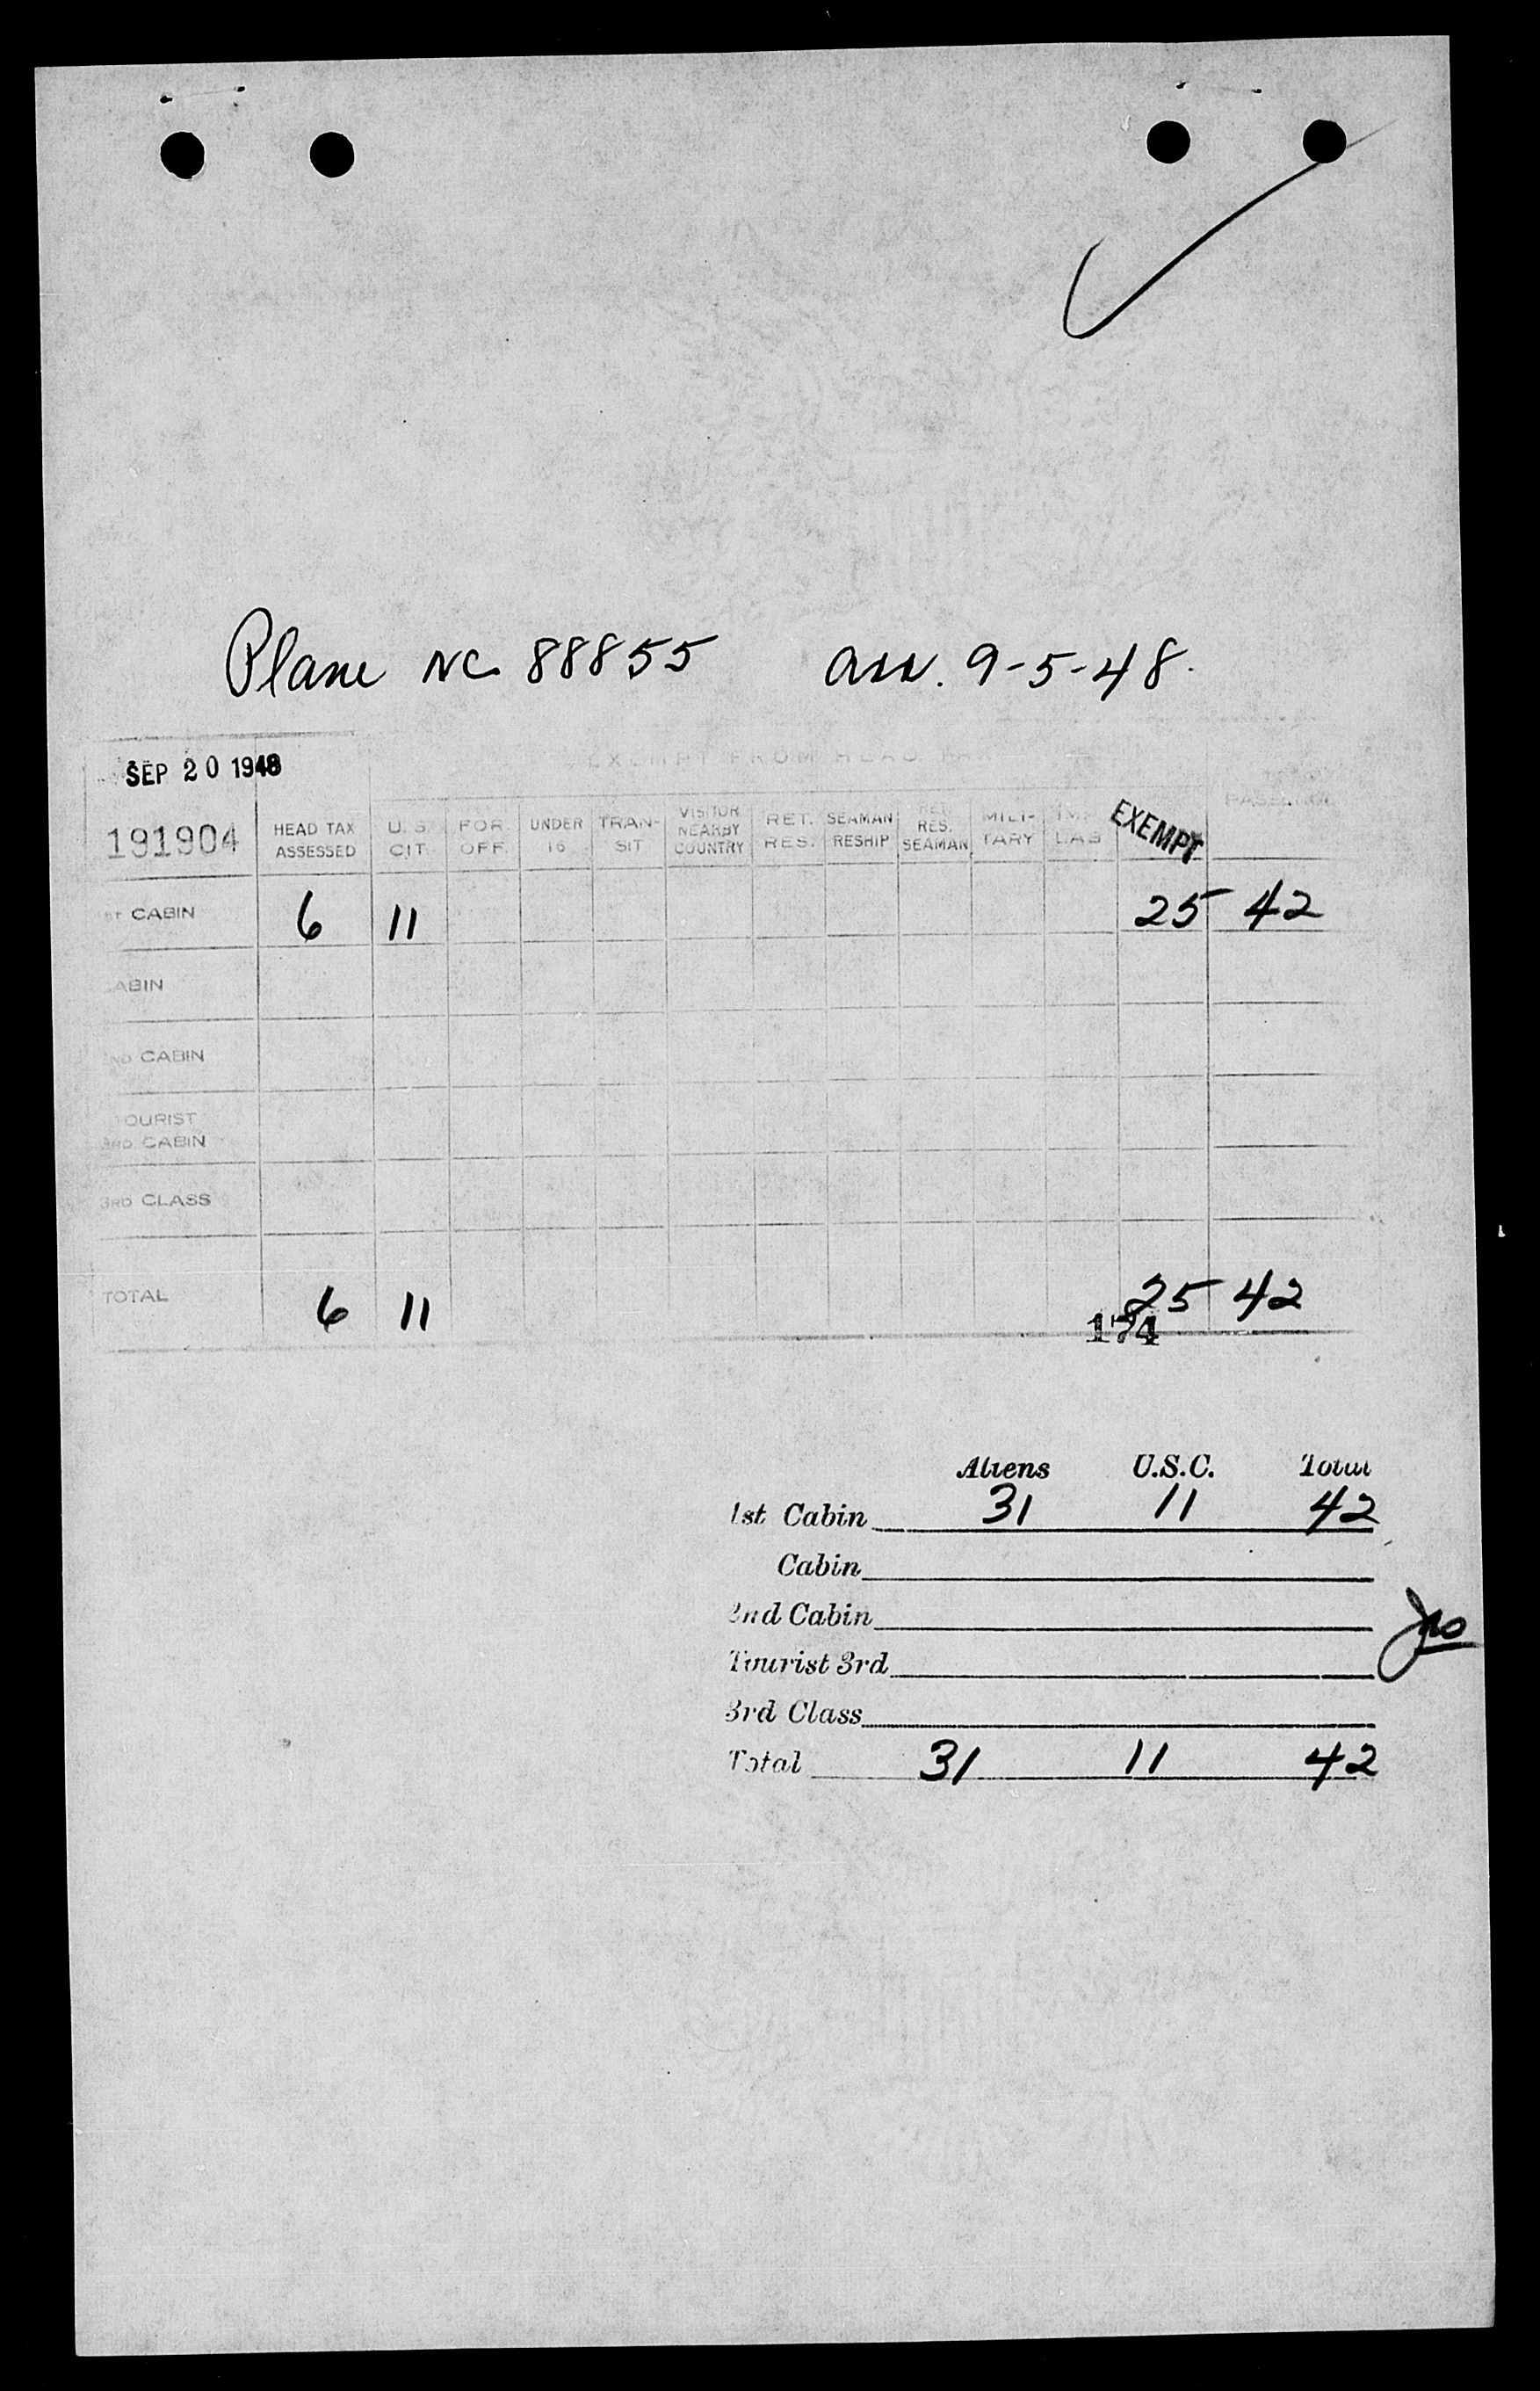 Plane NC 88855 arr. 9-5-48.
EXEMPT FROM HEAD
SEP 20 1948
191904
HEAD TAX ASSESSED
U. S. CIT.
FOR. OFF.
UNDER 16
TRAN- SIT
VISITOR NEARBY COUNTRY
RET. RES.
SEAMAN RESHIP
RET. RES. SEAMAN
MILI- TARY
LAB
EXEMPT
1ST CABIN 6 11 25 42
CABIN
2ND CABIN
TOURIST
3RD CABIN
3RD CLASS
TOTAL 6 11 25 42
174
Aliens U.S.C. Total
1st Cabin 31 11 42
Cabin
2nd Cabin
Tourist 3rd
3rd Class
Total 31 11 42